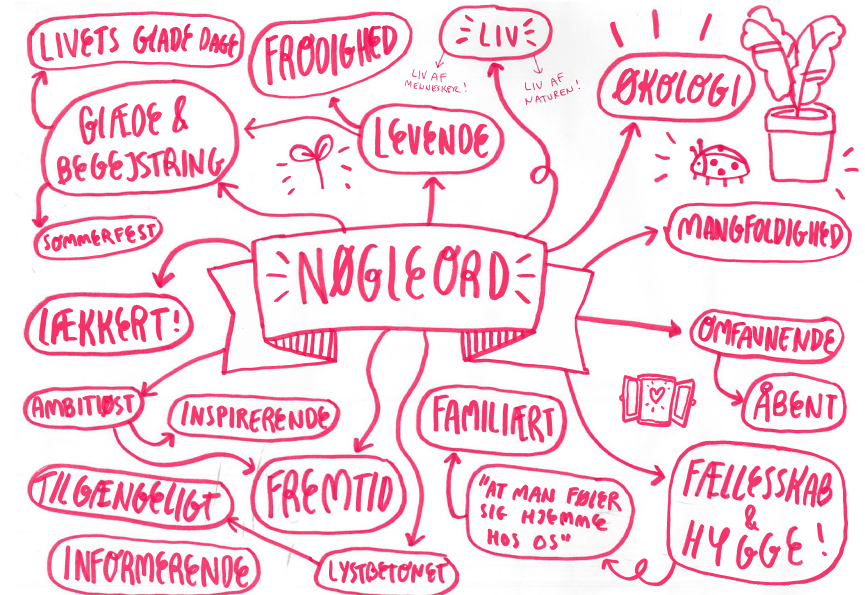 LIVETS GLADE DAGE
FRØDIGHED
LIV
LIV AF
MENNESKER!
LIV AF
NATUREN!
ØKOLOGI
GLÆDE &
BEGEJSTRING
LEVENDE
SOMMERFEST
MANGFOLDIGHED
NØGLEORD
LÆKKERT!
OMFAVNENDE
AMBITIØST
INSPIRERENDE
FAMILIÆRT
ÅBENT
TILGÆNGELIGT
FREMTID
"AT MAN FØLER
SIG HJEMME
HOS OS"
FÆLLESSKAB
&
HYGGE!
INFORMERENDE
LYSTBETONET